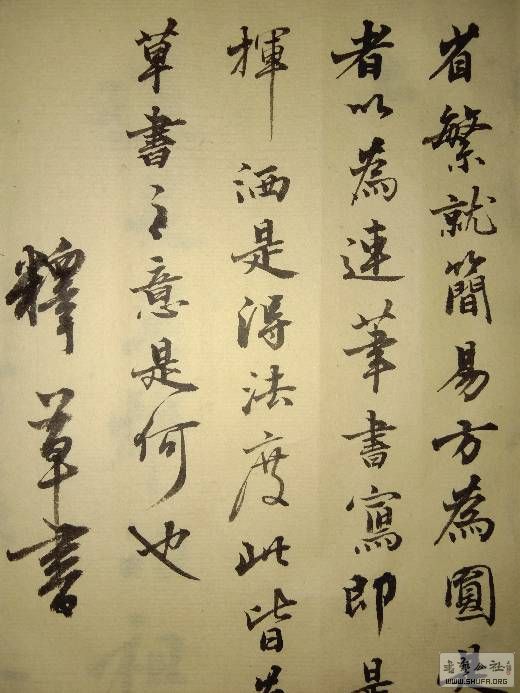 省繁就簡易方為圓是
者以為連筆書寫即是
揮洒是得法度此皆
草書之意是何也
釋草書
書艺公社
WWW.SHUFA.ORG